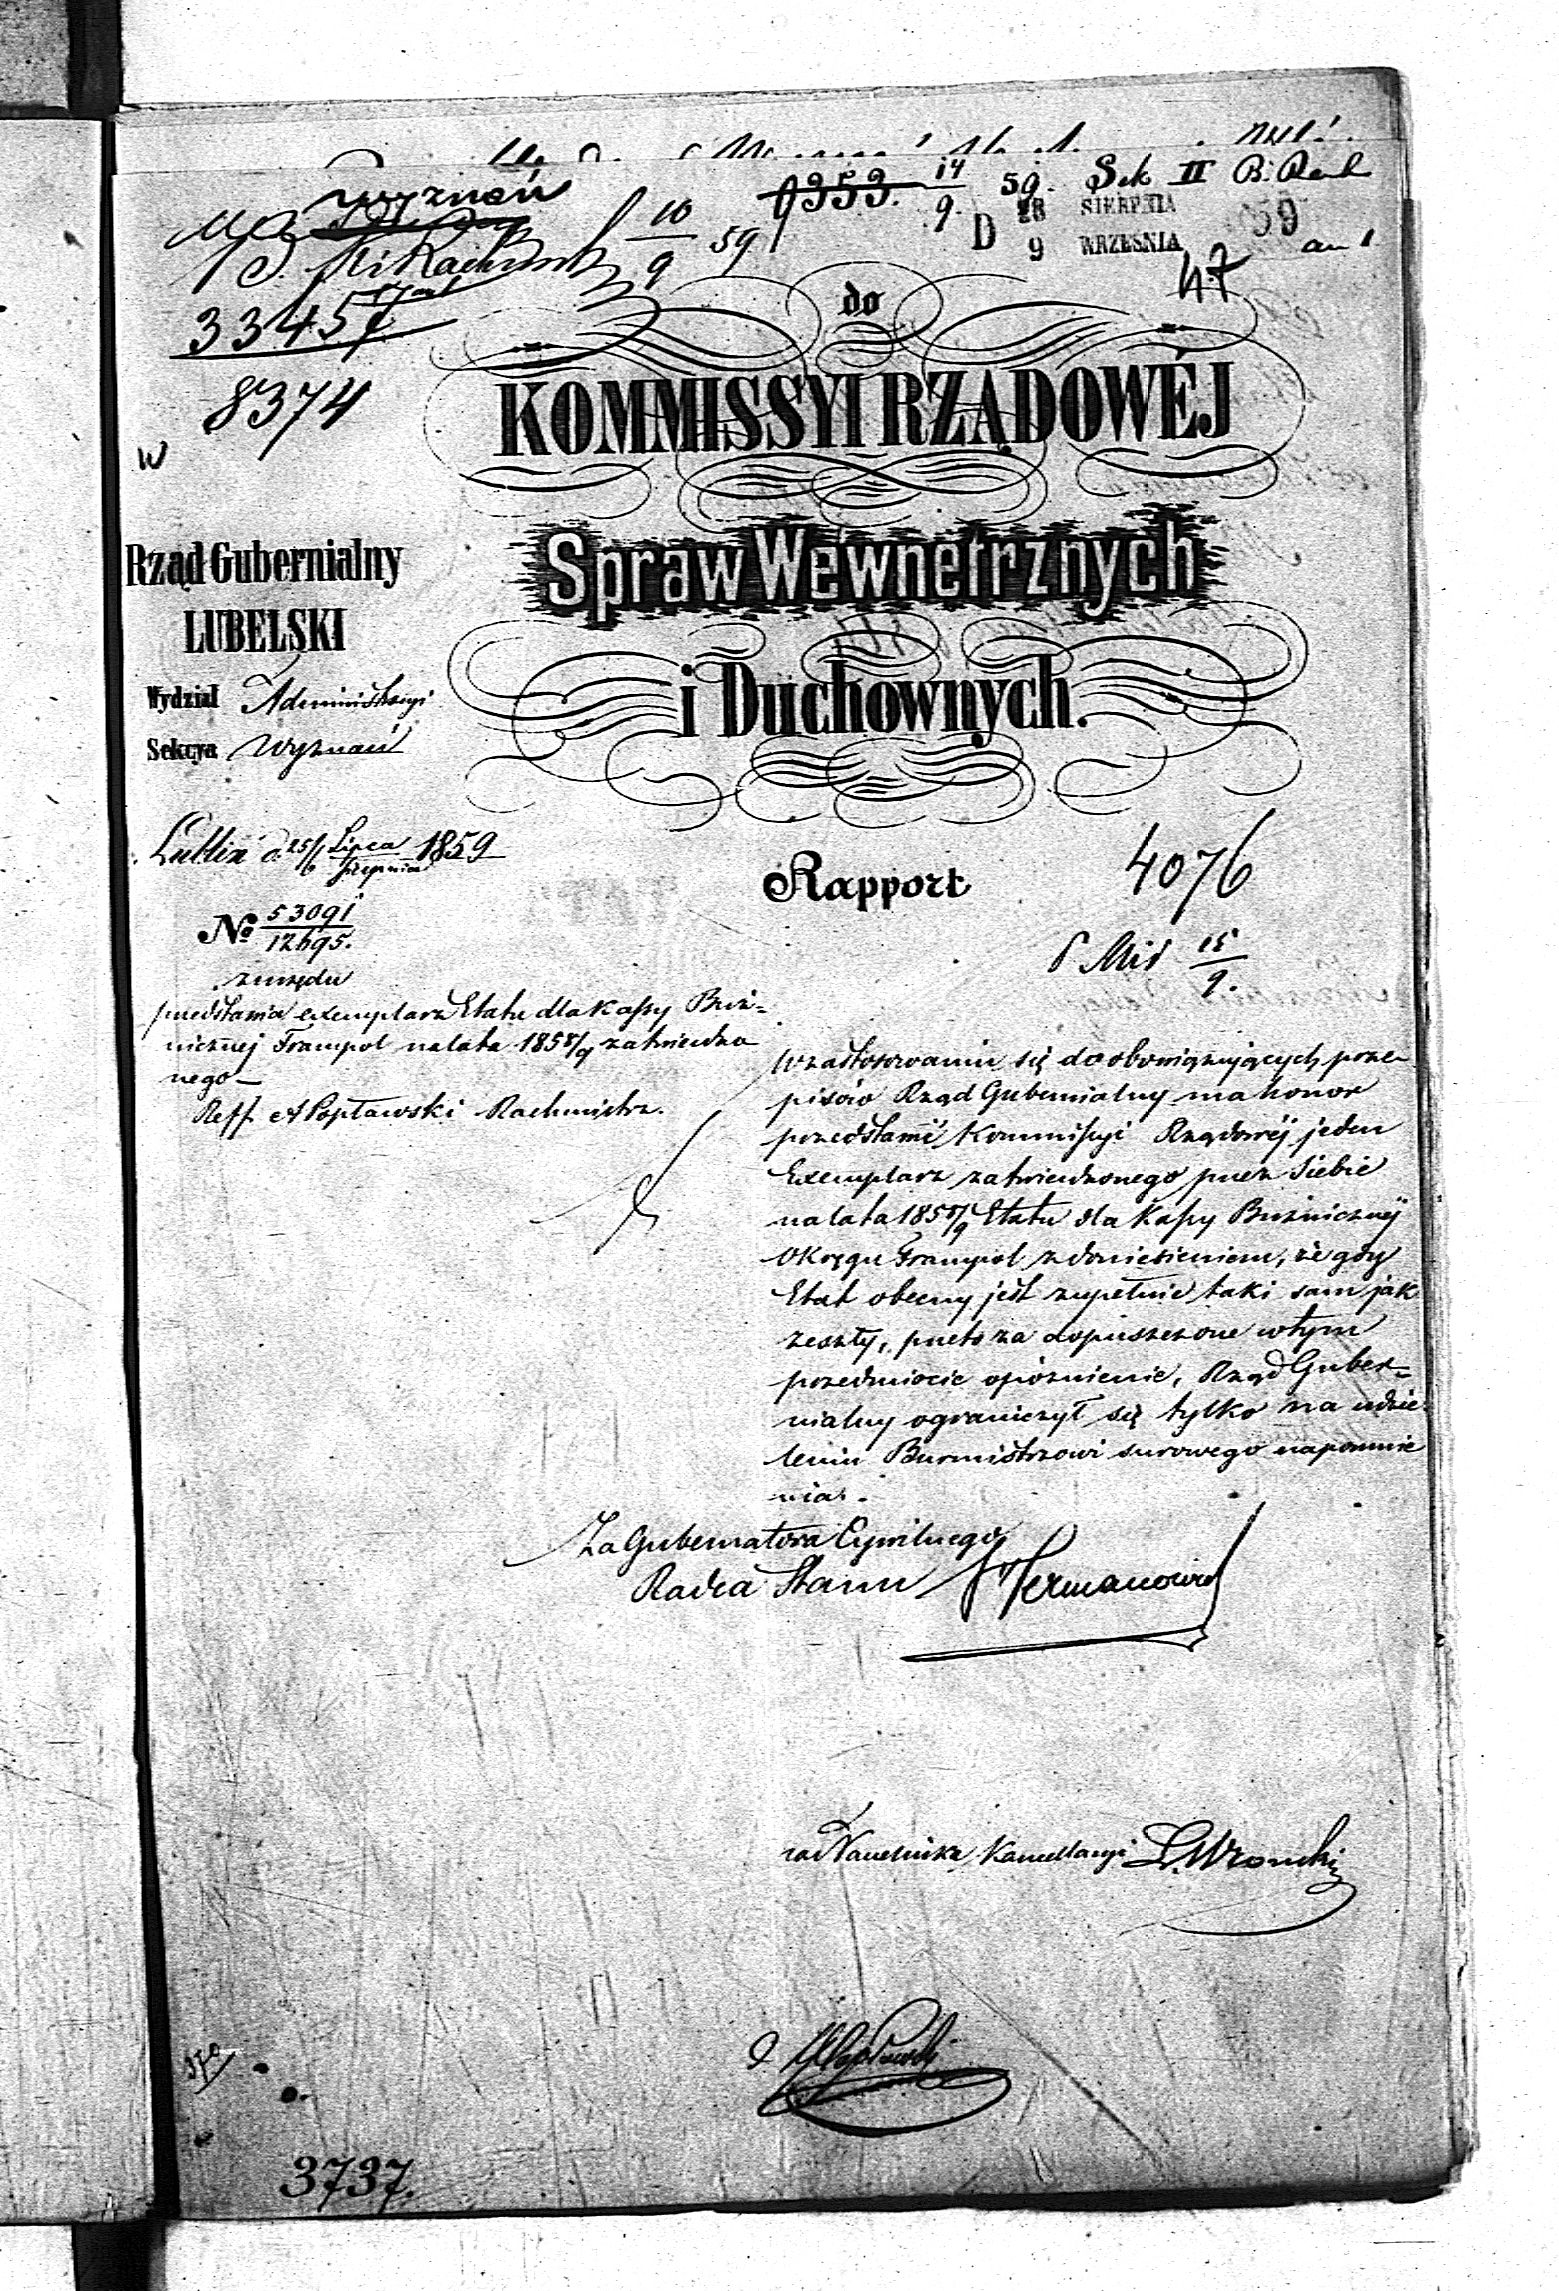 wyznań
10/9 59
9353. 14/9. 59. Sek II B. Rach
D 28 SIERPNIA 59
9 WRZEŚNIA
47
33457
8374
do
KOMMISSYI RZĄDOWÉJ
Spraw Wewnetrznych
i Duchownych.
Rząd Gubernialny
LUBELSKI
Wydział Administracyi
Sekcya Wyznań
Lublin d. 25/6 Lipca/Sierpnia 1859
Rapport
4076
No 53091/12695.
15/9.
z urzędu
przedstawia exemplarz Etatu dla Kassy Buż=
nicznej Frampol na lata 1858/9 zatwierdzo
nego —
Reff. A Popławski Rachmistrz.
W zastosowaniu się do obowiązujących prze-
pisów Rząd Gubernialny ma honor
przedstawić Kommissyi Rządowéj jeden
Exemplarz zatwierdzonego przez Siebie
na lata 1858/9 Etatu dla Kassy Bużnicznéj
Okręgu Frampol z doniesieniem, że gdy
Etat obecny jest zupełnie taki sam jak
zeszły, przeto za dopuszczone w tym
przedmiocie opóznienie, Rząd Guber=
nialny ograniczył się tylko na udzie
leniu Burmistrzowi surowego napomnie
nia.
Za Gubernatora Cywilnego
Radca Stanu Hermanowicz
za Naczelnika Kancellaryi L. Wronski
3737.